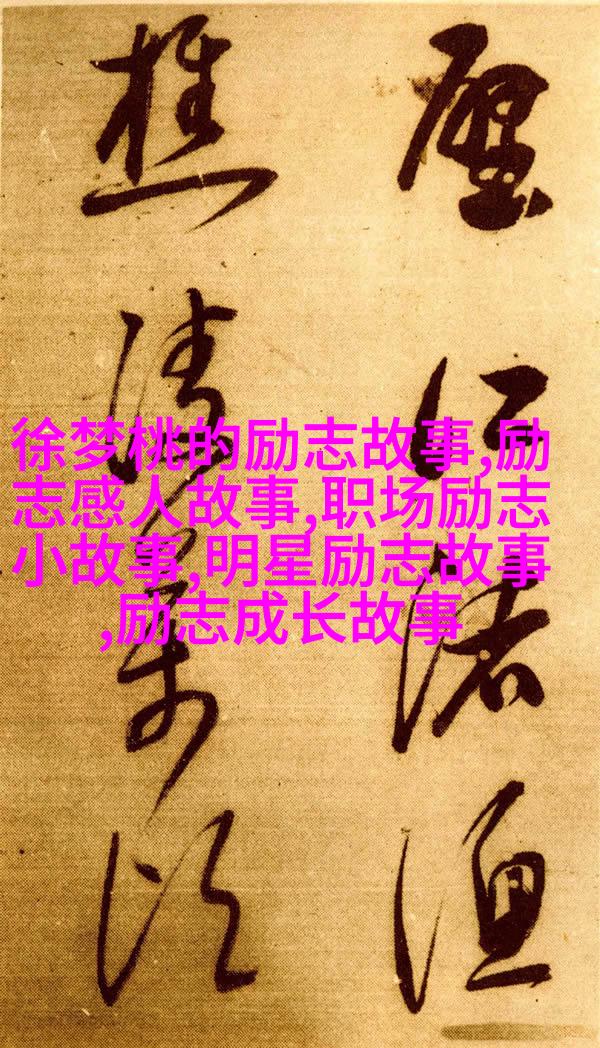 江渚漁
樵
徐梦桃的励志故事,励
志感人故事,职场励志
小故事,明星励志故事
,励志成长故事